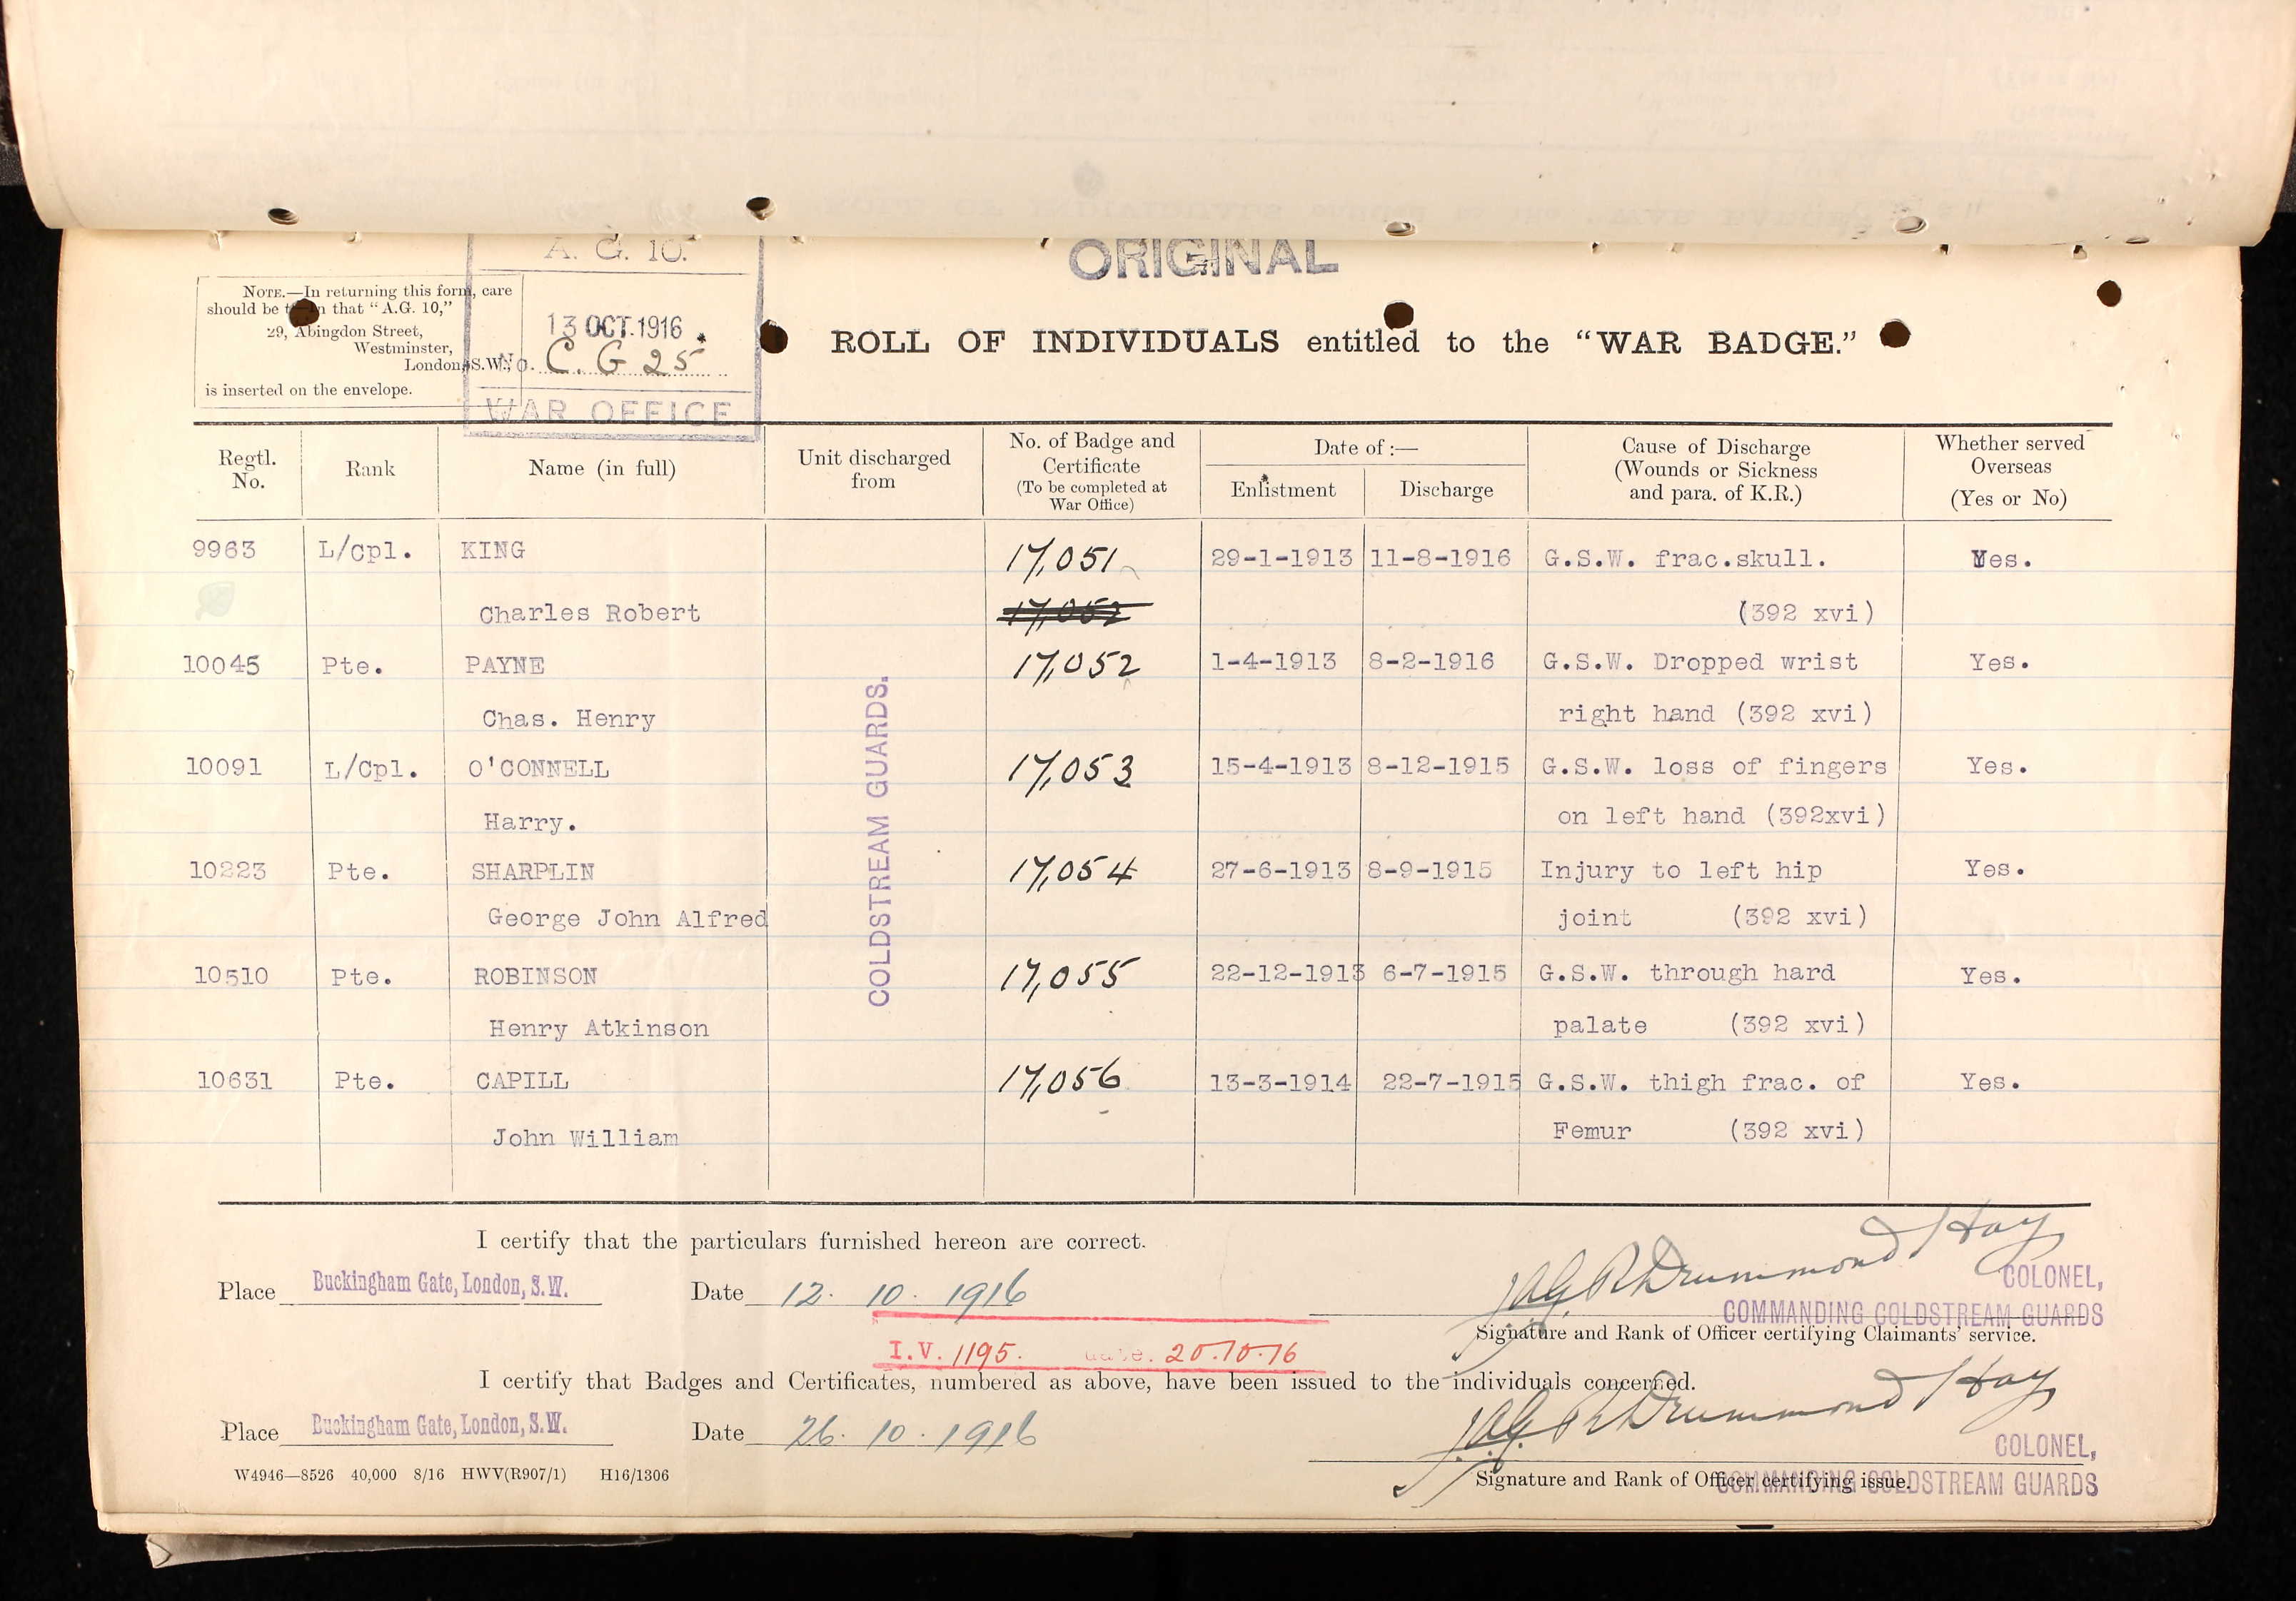 A. G. 10.
ORIGINAL
NOTE.—In returning this form, care
should be that "A.G. 10,"
29, Abingdon Street,
Westminster,
London, S.W.,
is inserted on the envelope.
13 OCT. 1916
No. C. G 25
WAR OFFICE
ROLL OF INDIVIDUALS entitled to the "WAR BADGE."
Regtl. No. Rank Name (in full) Unit discharged from No. of Badge and Certificate (To be completed at War Office) Date of :— Enlistment Discharge Cause of Discharge (Wounds or Sickness and para. of K.R.) Whether served Overseas (Yes or No)
9963 L/Cpl. KING 17,051 29-1-1913 11-8-1916 G.S.W. frac.skull. Yes.
Charles Robert 17,052 (392 xvi)
10045 Pte. PAYNE 17,052 1-4-1913 8-2-1916 G.S.W. Dropped wrist Yes.
Chas. Henry right hand (392 xvi)
10091 L/Cpl. O'CONNELL 17,053 15-4-1913 8-12-1915 G.S.W. loss of fingers Yes.
Harry. on left hand (392xvi)
10223 Pte. SHARPLIN 17,054 27-6-1913 8-9-1915 Injury to left hip Yes.
George John Alfred joint (392 xvi)
10510 Pte. ROBINSON 17,055 22-12-1913 6-7-1915 G.S.W. through hard Yes.
Henry Atkinson palate (392 xvi)
10631 Pte. CAPILL 17,056 13-3-1914 22-7-1915 G.S.W. thigh frac. of Yes.
John William Femur (392 xvi)
COLDSTREAM GUARDS.
I certify that the particulars furnished hereon are correct.
Place Buckingham Gate, London, S.W. Date 12. 10. 1916
Drummond Hay
COLONEL,
COMMANDING COLDSTREAM GUARDS
Signature and Rank of Officer certifying Claimants' service.
I.V. 1195. date. 20.10.16
I certify that Badges and Certificates, numbered as above, have been issued to the individuals concerned.
Place Buckingham Gate, London, S.W. Date 26. 10. 1916
Drummond Hay
COLONEL,
COMMANDING COLDSTREAM GUARDS
Signature and Rank of Officer certifying issue.
W4946—8526 40,000 8/16 HWV(R907/1) H16/1306